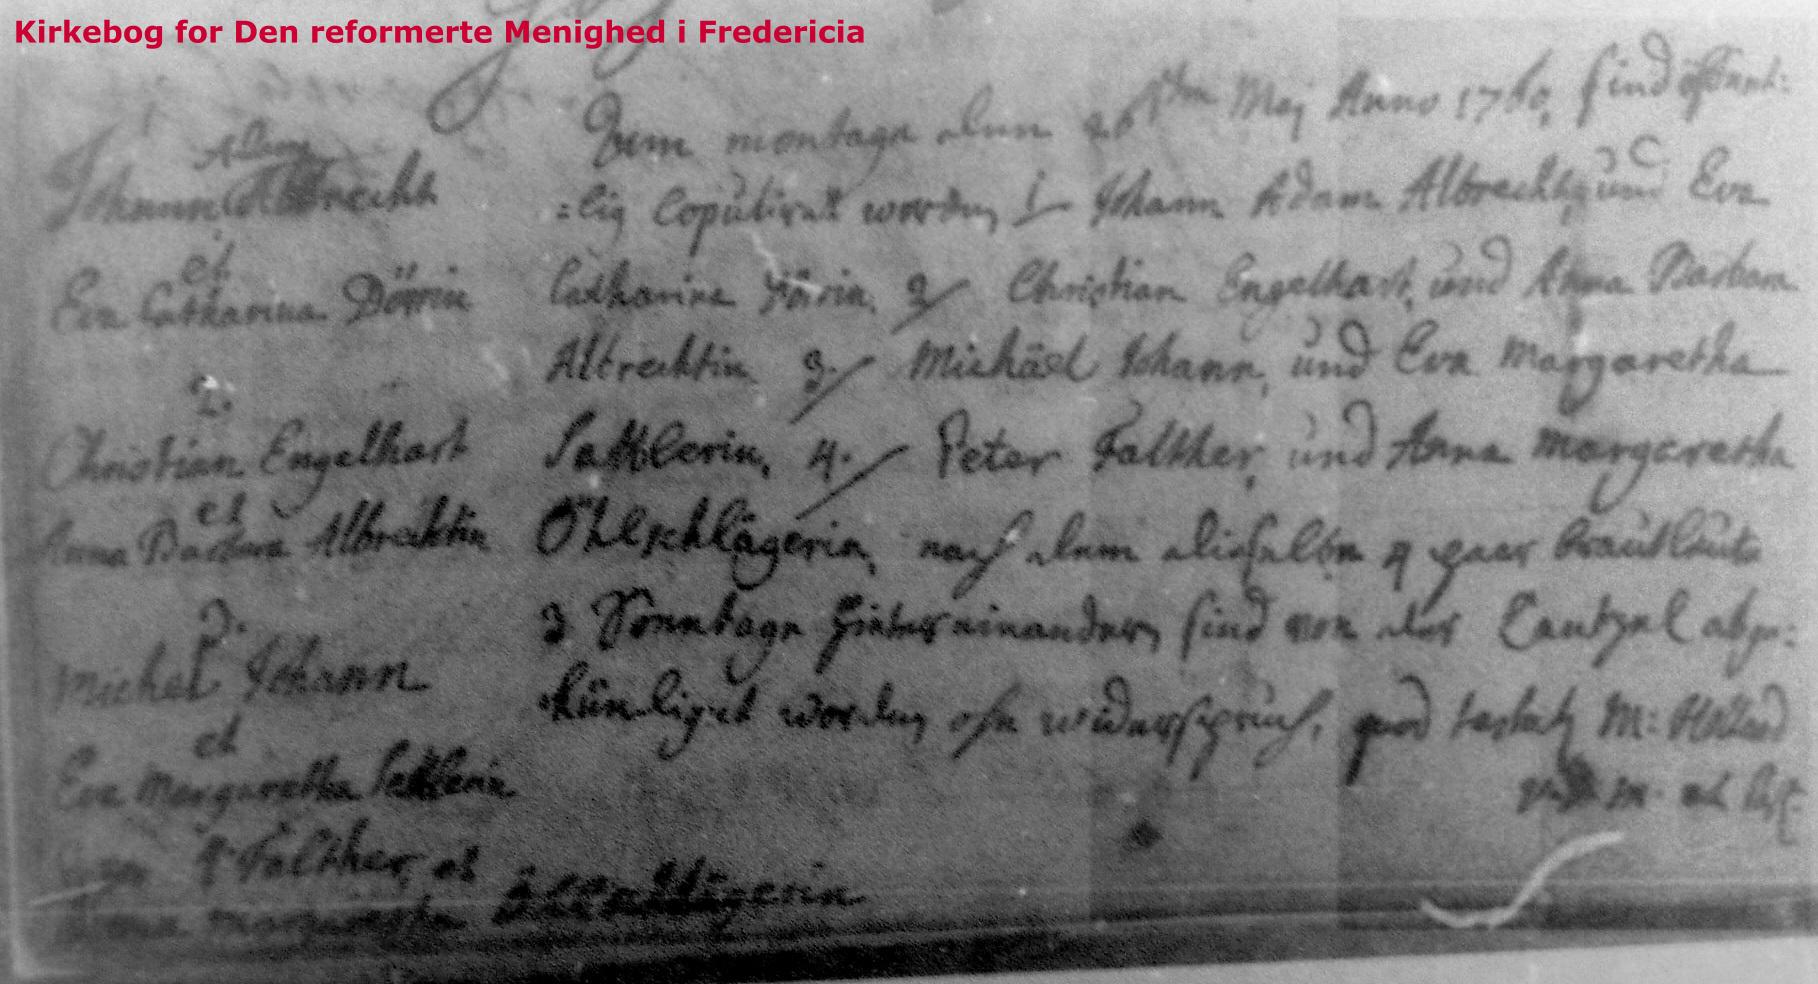 Kirkebog for Den reformerte Menighed i Fredericia
1
Adam
Johann Albrecht
et
Eva Catharina Dörrin
2.
Christian Engelhart
et
Anna Barbara Albrechtin
3.
Michel Johann
et
Eva Margaretha Sattlerin
4 Falther, et
Anna Margaretha Öhlschlägerin
Zum montage den 26ten Maj Anno 1760, sind öffent:
=lig Copuliret worden, 1/ Johann Adam Albrecht, und Eva
Catharina Dörin, 2/ Christian Engelhart, und Anna Barbara
Albrechtin 3/ Michäel Johann, und Eva Margaretha
Sattlerin, 4./ Peter Falther, und Anna Margaretha
Öhlschlägerin, nach dem dieselben 4 paar brautläute
3 Sonntage hinter einander, sind von der Cantzel abge:
kündiget worden, ohn widerspruch, quod testatur M:
M. et